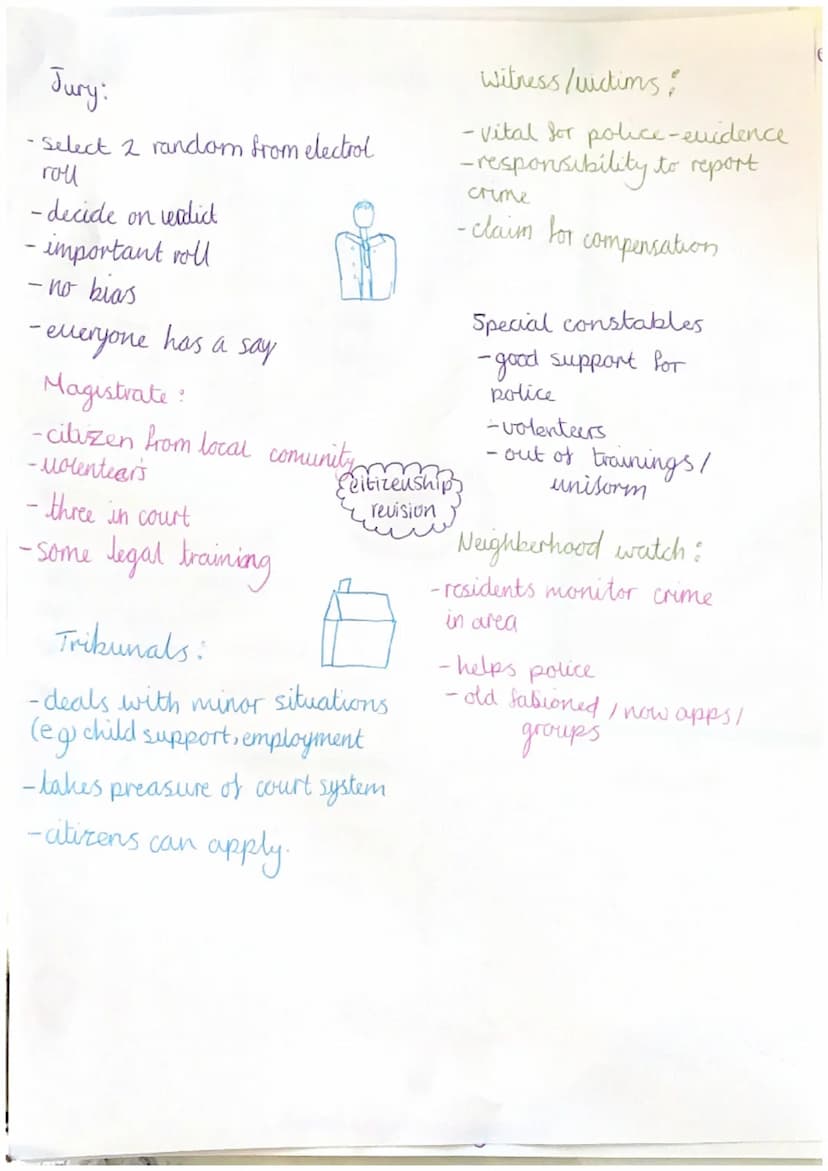 Jury:
- select 2 random from electrol
roll
- decide on verdict
- important roll
- no bias
- everyone has a say
Magistrate:
- citizen from local comunity
- volentears
- three in court
- some legal training
Tribunals:
- deals with minor situations
(eg) child support, employment
- takes preasure of court system
- citizens can apply.
citizenship
revision
Witness/victims:
- vital for police - evidence
- responsibility to report
crime
- claim for compensation
Special constables
- good support for
police
- volenteers
- out of trainings/
uniform
Neighberhood watch:
- residents monitor crime
in area
- helps police
- old fashioned / now apps/
groups